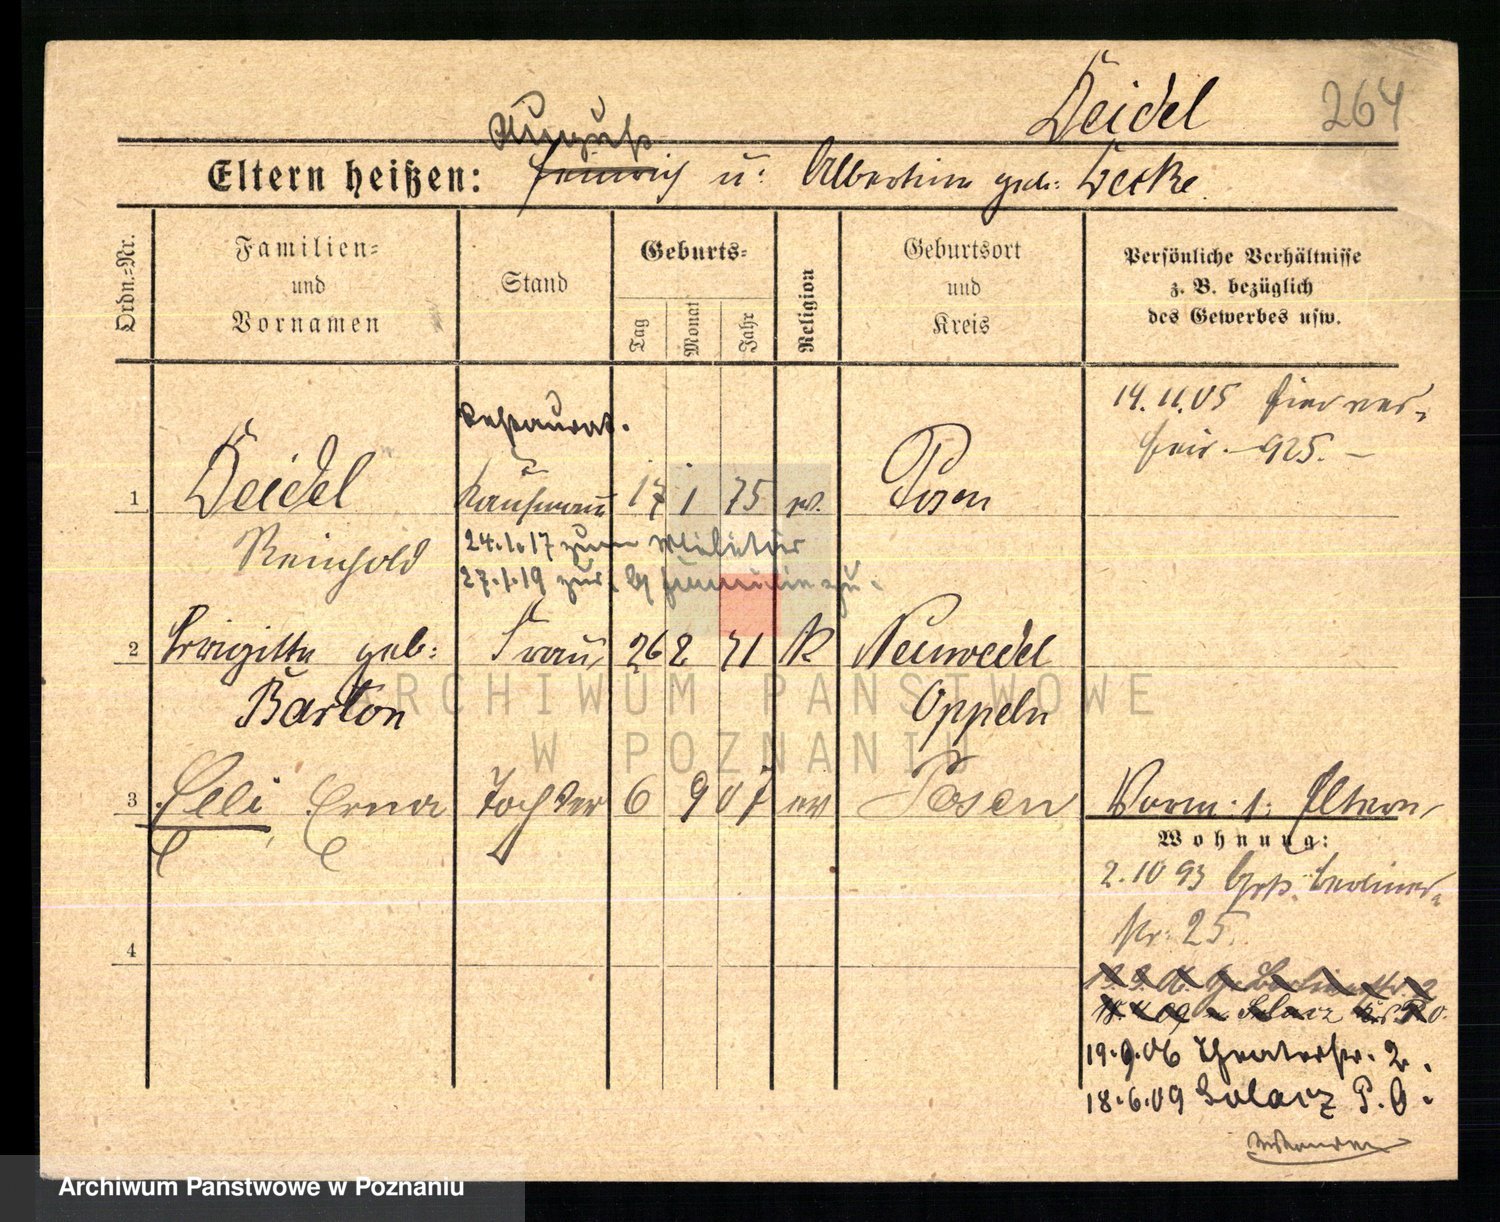 Deidel 264
August
Eltern heißen: Heinrich u. Albertine geb. Leske
Ordn.-Nr.
Familien-
und
Vornamen
Stand
Geburts-
Tag
Monat
Jahr
Religion
Geburtsort
und
Kreis
Persönliche Verhältnisse
z. B. bezüglich
des Gewerbes usw.
14.11.05 hier ver-
heir. 925.
Restaurat.
1 Deidel Kaufmann 17 1 75 ev. Posen
Reinhold 24.1.17 zum Militär
27.1.19 zur.
2 Brigitte geb. Frau 26 2 71 K Neuwedel
Barton Oppeln
3 Elli, Erna Tochter 6 9 07 ev Posen
Wohnung:
2.10 93 Berliner-
str. 25.
4
19.9.06 Theaterstr. 2.
18.6.09 Solacz P.O.
ARCHIWUM PAŃSTWOWE
W POZNANIU
Archiwum Państwowe w Poznaniu